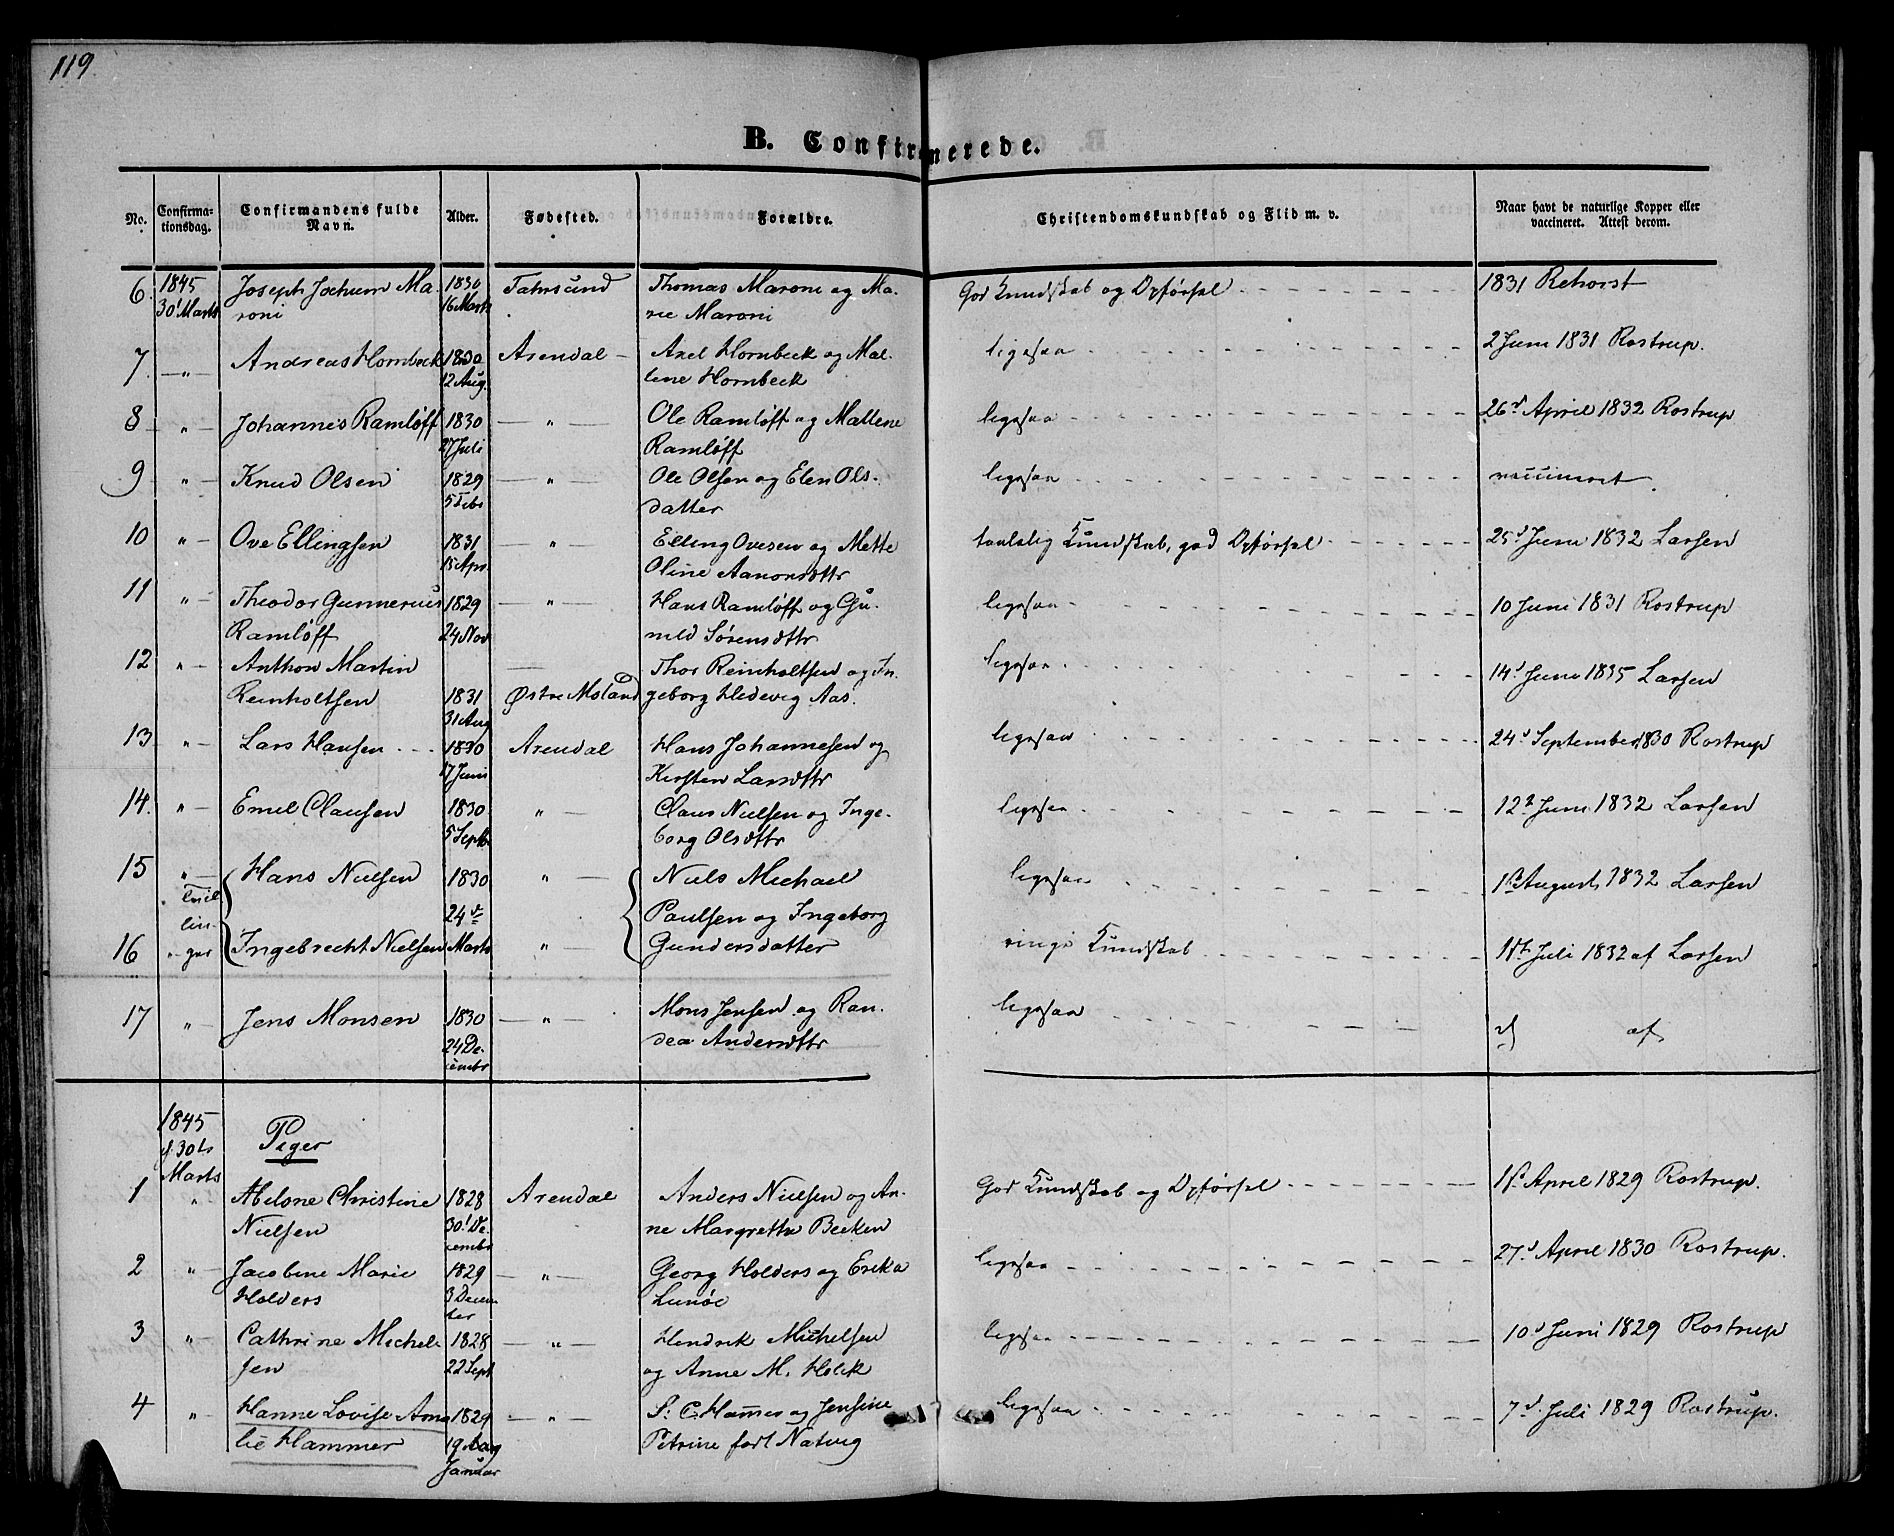 119.
B. Confirmerede.
No. Confirma-tionsdag. Confirmandens fulde Navn. Alder. Fødested. Forældre. Christendomskundskab og Flid m. v. Naar havt de naturlige Kopper eller vaccineret. Attest derom.
6 1845 Joseph Jochum Ma- 1830 Fahrsund Thomas Maroni og Ma- God Kundskab og Opførsel 1831 Rehorst
30' Marts roni 16 Marts rie Maroni
7. „ Andreas Hornbeck 1830 Arendal Axel Hornbeck og Mal- ligesaa 2 Juni 1831 Rostrup.
12 Aug. lene Hornbeck
8 „ Johannes Ramløff 1830 — „ — Ole Ramløff og Mallene ligesaa 26d April 1832 Rostrup
27 Juli Ramløff
9 „ Knud Olsen 1829 — „ — Ole Olsen og Elen Ols- ligesaa vaccineret.
5 Febr datter
10 „ Ove Ellingsen 1831 — „ — Elling Ovesen og Mette taalelig Kundskab, god Opførsel 25d Juni 1832 Larsen
Apr. Oline Aanonsdttr
11 „ Theodor Gunnerius 1829 — „ — Hans Ramløff og Gu- ligesaa 10 Juni 1831 Rostrup
Ramløff 24 Nov nild Sørensdttr
12 „ Anthon Martin — Thor Reinholtsen og In- ligesaa 14d Juni 1835 Larsen
Reinholtsen 1831 Østre Moland geborg Hedevig Aas.
31 Aug
13 „ Lars Hansen 1830 Arendal Hans Johannesen og ligesaa 24d September 1830 Rostrup
17 Juni Kirsten Larsdttr
14. „ Emil Clausen 1830 „ — Claus Nielsen og Inge- ligesaa 12t Juni 1832 Larsen
5 Septbr borg Olsdttr
15 „ Hans Nielsen 1830 „ — Niels Michael ligesaa August 1832 Larsen
Tvil
lin- 24de Paulsen og Ingeborg
16 ger Ingebrecht Nielsen Marts „ — Gundersdatter ringe Kundskab Juli 1832 af Larsen
17 „ Jens Monsen 1830 — „ — Mons Jensen og Ran- ligesaa af
24 De- dea Andersdttr
cembr
1845
d. 30te Piger
Marts
1 „ Abelone Christine 1828 Arendal Anders Nielsen og An- God Kundskab og Opførsel April 1829 Rostrup.
Nielsen 30' De- ne Margrethe Becken
cembr
2 „ Jacobine Marie 1829 — „ — Georg Holders og Erika ligesaa 27d April 1830 Rostrup.
Holders 3 Decem- Lunöe
ber
3 „ Cathrine Michel- 1828 — „ — Hendrik Michelsen ligesaa 10d Juni 1829 Rostrup
sen 22 Sept og Anne M. Holck
4 „ Hanne Lovise Ama- 1829 — „ — S: C. Hammer og Jensine ligesaa 7d Juli 1829 Rostrup.
lie Hammer 19 Petrine født Natvig
Januar